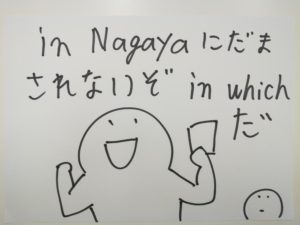 in Nagayaにだま
されないぞ in which
だ